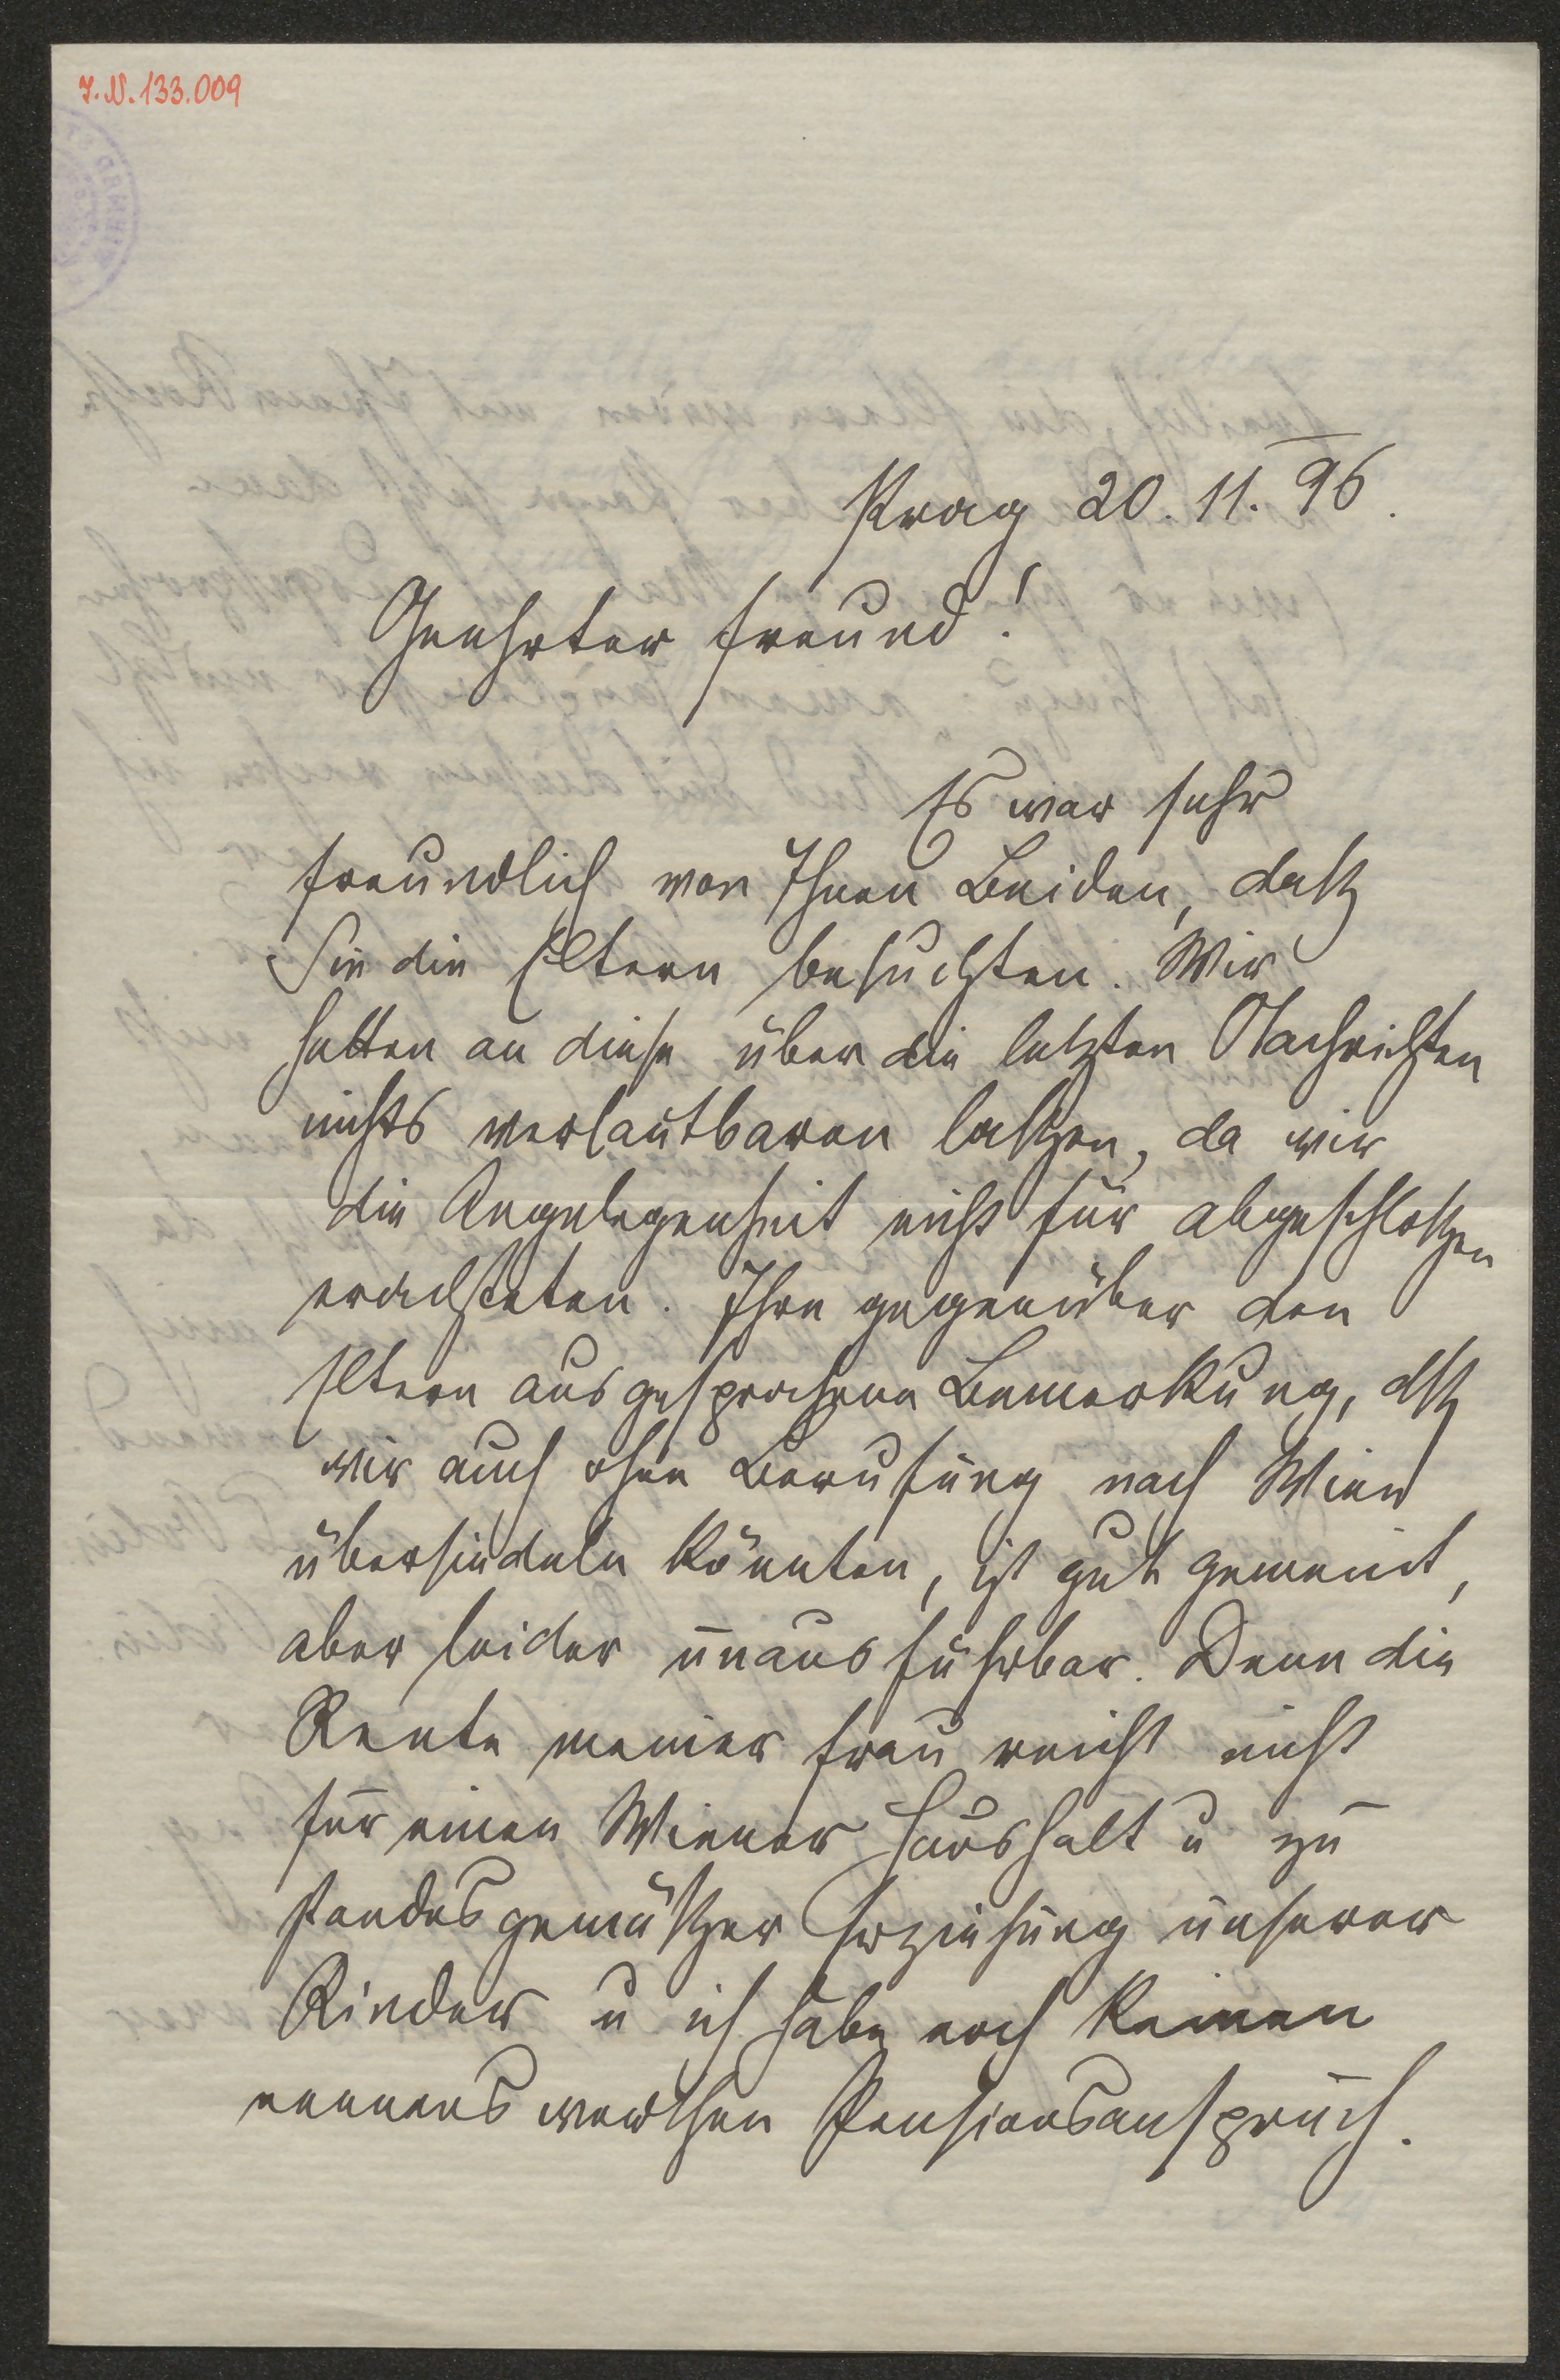 I. N. 133.009
Prag 20. 11. 96.
Geehrter Freund!
Es war sehr
freundlich von Ihnen Beiden, daß
Sie die Eltern besuchten. Wir
hatten an diese über die letzten Nachrichten
nichts verlautbaren laßen, da wir
die Angelegenheit nicht für abgeschloßen
erachteten. Ihre gegenüber den
Eltern ausgesprochene Bemerkung, dß
wir auch ohne Berufung nach Wien
übersiedeln könnten, ist gut gemeint,
aber leider unausführbar. Denn die
Rente meiner Frau reicht nicht
für einen Wiener Haushalt u zu
standesgemäßer Erziehung unserer
Kinder u ich habe noch keinen
nennenswerthen Pensionsanspruch.